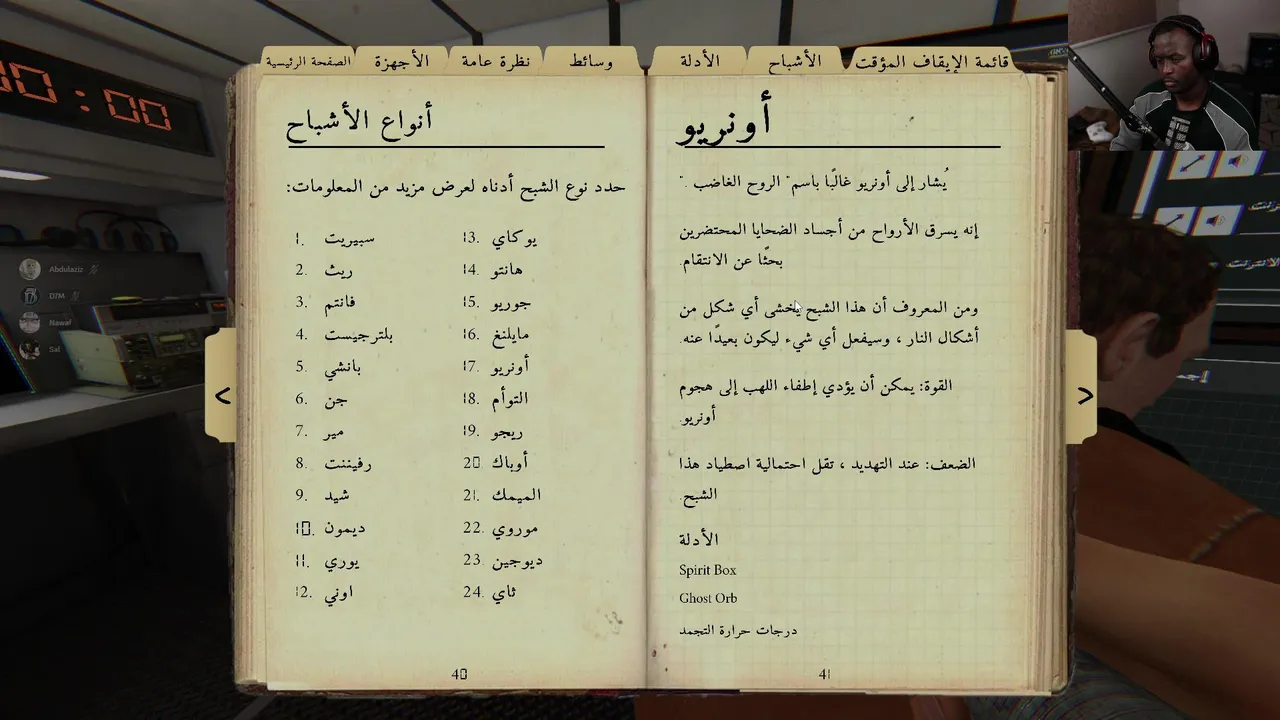 الصفحة الرئيسية
الأجهزة
نظرة عامة
وسائط
الأدلة
الأشباح
قائمة الإيقاف المؤقت
00:00
Abdulaziz
D7M
Nawaf
Sal
أنواع الأشباح
حدد نوع الشبح أدناه لعرض مزيد من المعلومات:
1. سبيريت
2. ريث
3. فانتم
4. بلترجيست
5. بانشي
6. جن
7. مير
8. رفيننت
9. شيد
10. ديمون
11. يوري
12. اوني
13. يوكاي
14. هانتو
15. جوريو
16. مايلنغ
17. أونريو
18. التوأم
19. ريجو
20 أوباك
21. الميمك
22. موروي
23. ديوجين
24. ثاي
40
أونريو
يُشار إلى أونريو غالبًا باسم" الروح الغاضب ."
إنه يسرق الأرواح من أجساد الضحايا المحتضرين
بحثًا عن الانتقام.
ومن المعروف أن هذا الشبح يخشى أي شكل من
أشكال النار ، وسيفعل أي شيء ليكون بعيدًا عنه.
القوة: يمكن أن يؤدي إطفاء اللهب إلى هجوم
أونريو.
الضعف: عند التهديد ، تقل احتمالية اصطياد هذا
الشبح.
الأدلة
Spirit Box
Ghost Orb
درجات حرارة التجمد
41
<
>